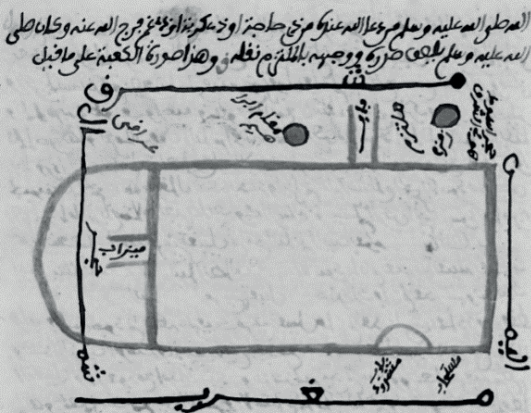 الله صلى الله عليه وسلم من دعا الله عنده من ذي حاجة او ذي كربة او ذي غم فرج الله عنه وكان صلى
الله عليه وسلم يلصق صدره ووجهه بالملتزم نفله وهذا صورة الكعبة على ما قيل
شرق
عراقي
مقام ابراهيم
باب
ملتزم
زمزم
ميزاب
حجر
اليمن
باب مسدود
مستجاب
شام
غرب